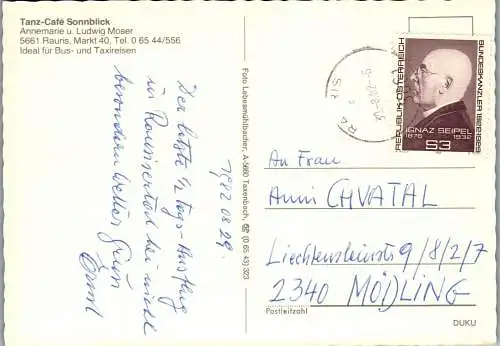 Tanz-Café Sonnblick
Annemarie u. Ludwig Moser
5661 Rauris, Markt 40, Tel. 0 65 44/556
Ideal für Bus- und Taxireisen
1982 08 29.
Der letzte 1/2 Tags-Ausflug
in Raurisertal bei nicht
besonderm Wetter
Ernst
Foto Lebesmühlbacher, A-5660 Taxenbach, ☎ (0 65 43) 323
REPUBLIK ÖSTERREICH
BUNDESKANZLER 1922-1929
IGNAZ SEIPEL
1876 1932
S3
An Frau
Anni CHVATAL
Liechtensteinstr 9/8/2/7
2340 MÖDLING
Postleitzahl
DUKU